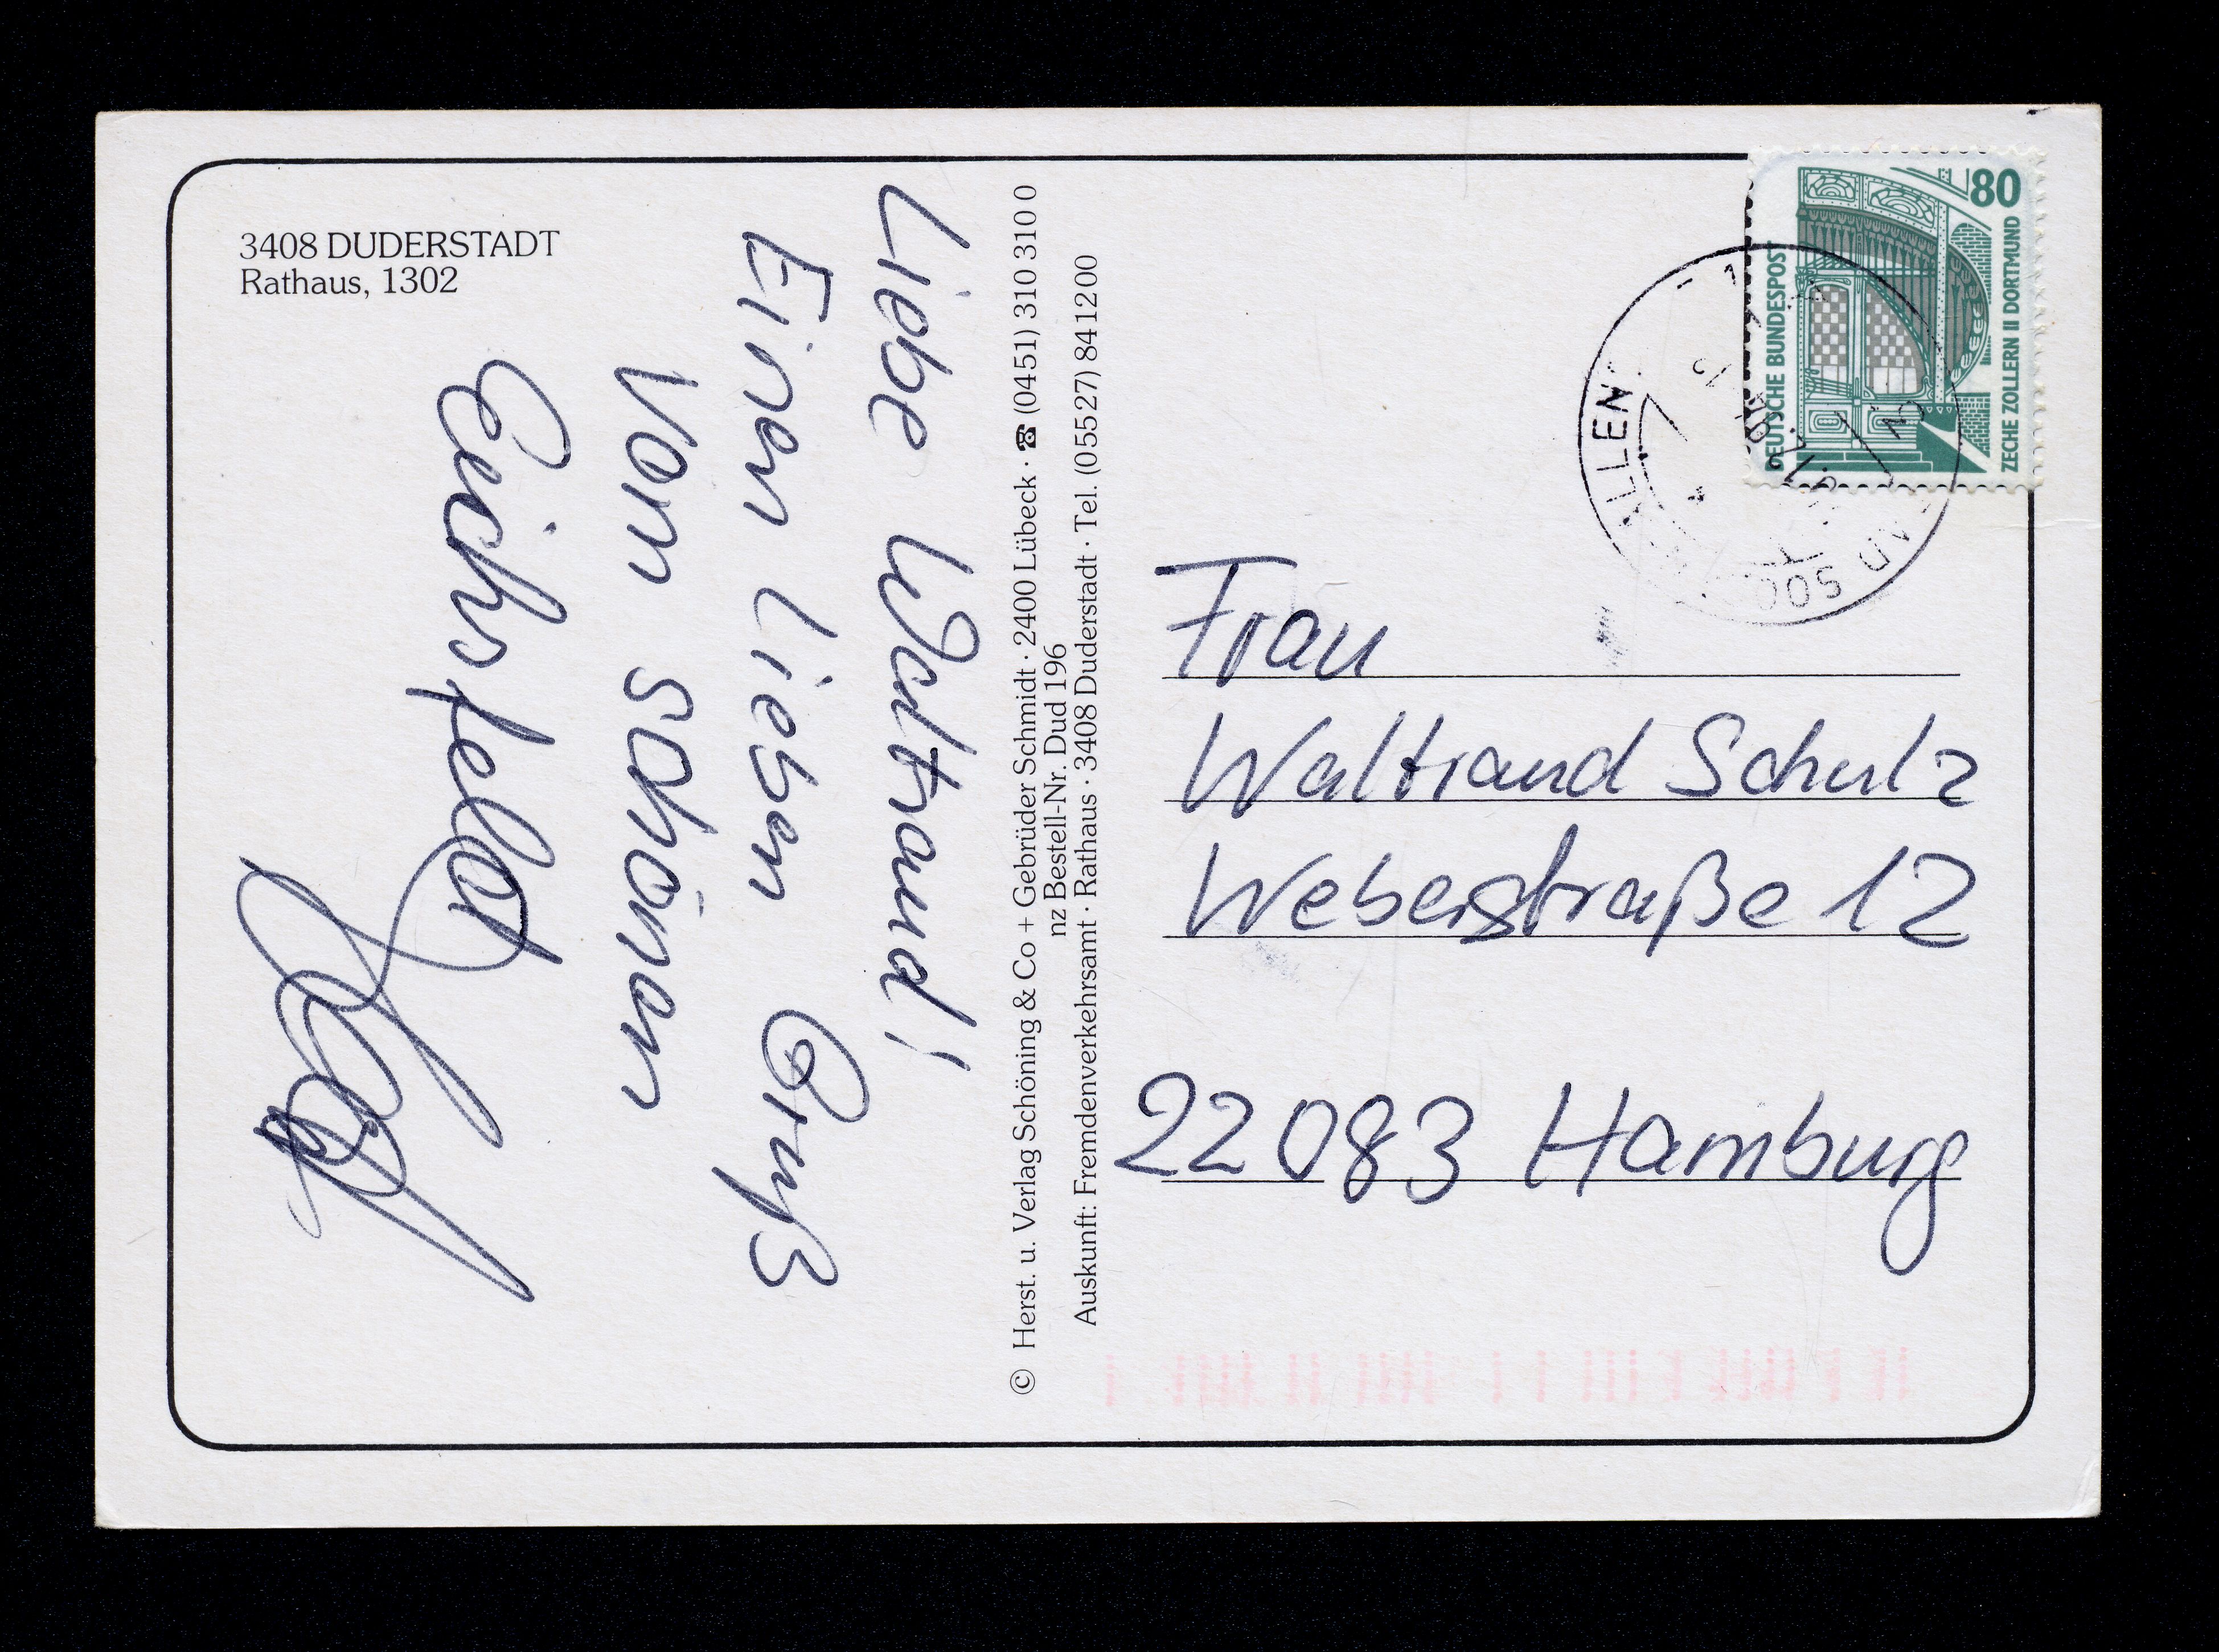 3408 DUDERSTADT
Rathaus, 1302
Liebe Waltraud!
Einen Lieben Gruß
Vom schönen
Eichsfeld
© Herst. u. Verlag Schöning & Co + Gebrüder Schmidt · 2400 Lübeck · ☎ (0451) 310 310 0
nz Bestell-Nr. Dud 196
Auskunft: Fremdenverkehrsamt · Rathaus · 3408 Duderstadt · Tel. (05527) 841200
80
DEUTSCHE BUNDESPOST
ZECHE ZOLLERN II DORTMUND
Frau
Waltraud Schulz
Weberstraße 12
22083 Hamburg